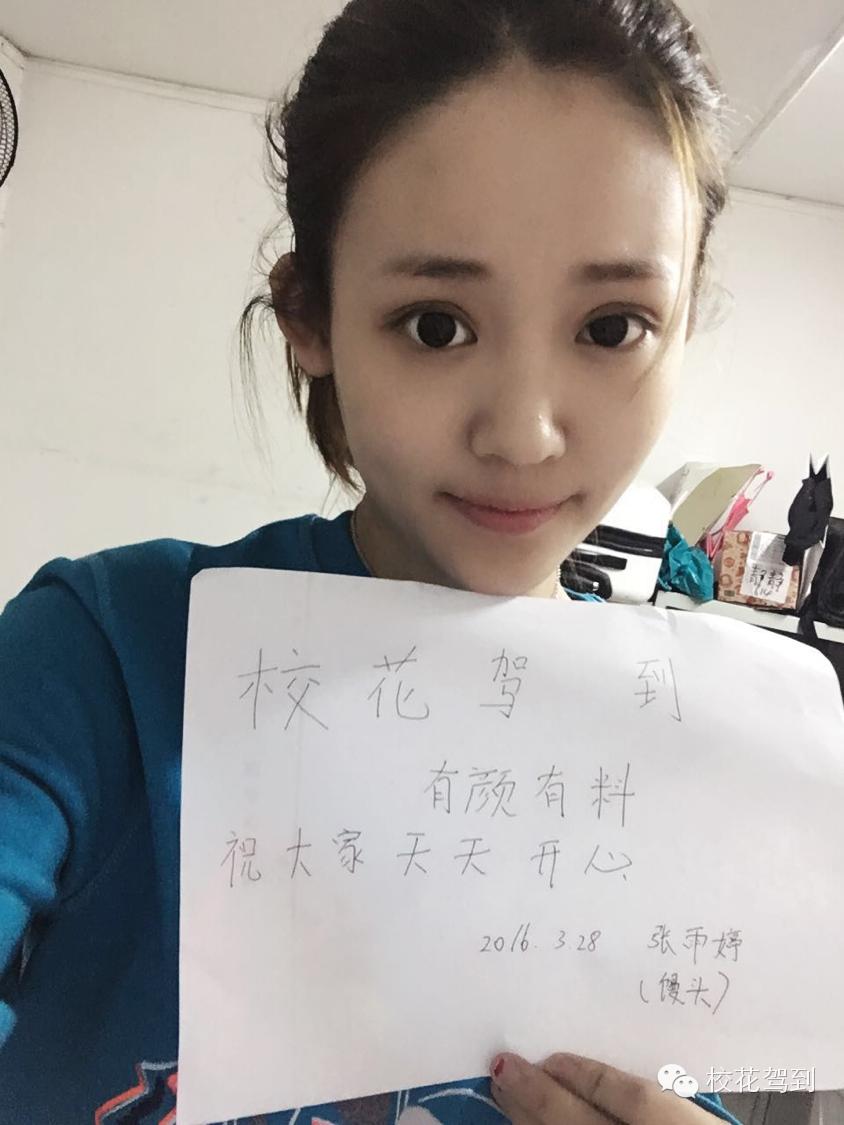 校花驾到
有颜有料
祝大家天天开心
2016.3.28 张雨婷
(馒头)
静静
校花驾到